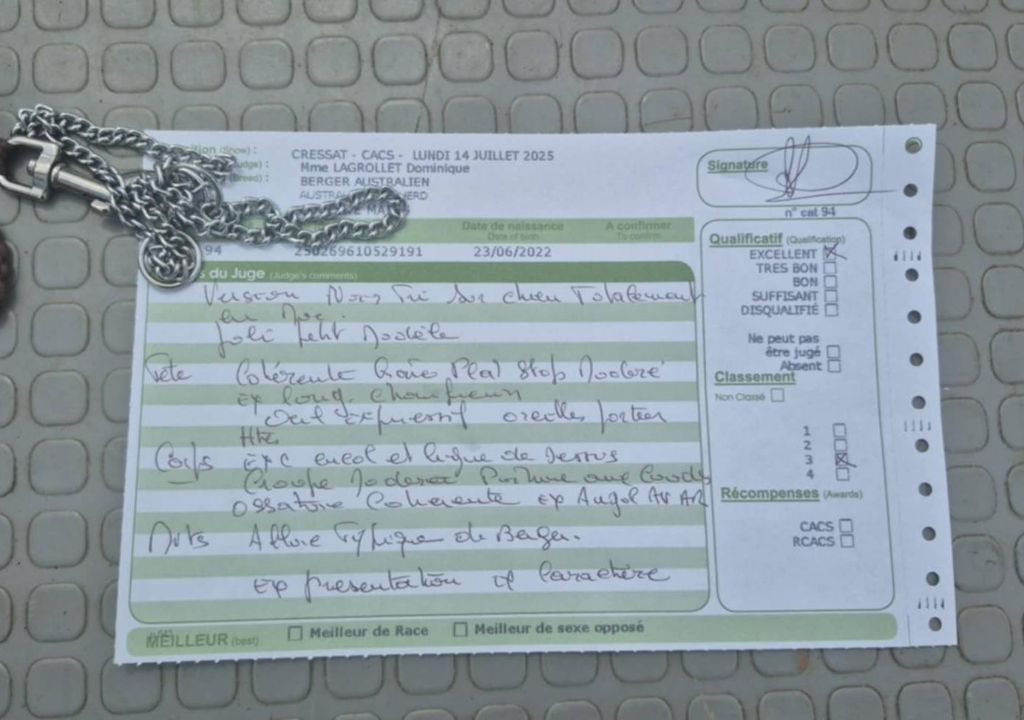 (Show) :
CRESSAT - CACS - LUNDI 14 JUILLET 2025
Mme LAGROLLET Dominique
(Breed) :
BERGER AUSTRALIEN
Signature
n° cat 94
Date de naissance
Date of birth
A confirmer
To confirm
94
250269610529191
23/06/2022
du Juge (Judge's comments)
Version Noir Tri sur chien Totalement
en Mue.
Joli petit Modèle
Tete Cohérente Crane Plat Stop Modéré
Ex long. chanfrein
Oeil expressif oreilles portées
Hte
Corps Exc encol et ligne de Dessus
Croupe Moderée Poitrine aux Couds
Ossature Coherente Ex Angul AV AR
Mvts Allure Typique de Berger.
Ex presentation et Caractère
Qualificatif (Qualification)
EXCELLENT
TRES BON
BON
SUFFISANT
DISQUALIFIÉ
Ne peut pas
être jugé
Absent
Classement
Non Classé
1
2
3
4
Récompenses (Awards)
CACS
RCACS
MEILLEUR (best)
Meilleur de Race
Meilleur de sexe opposé